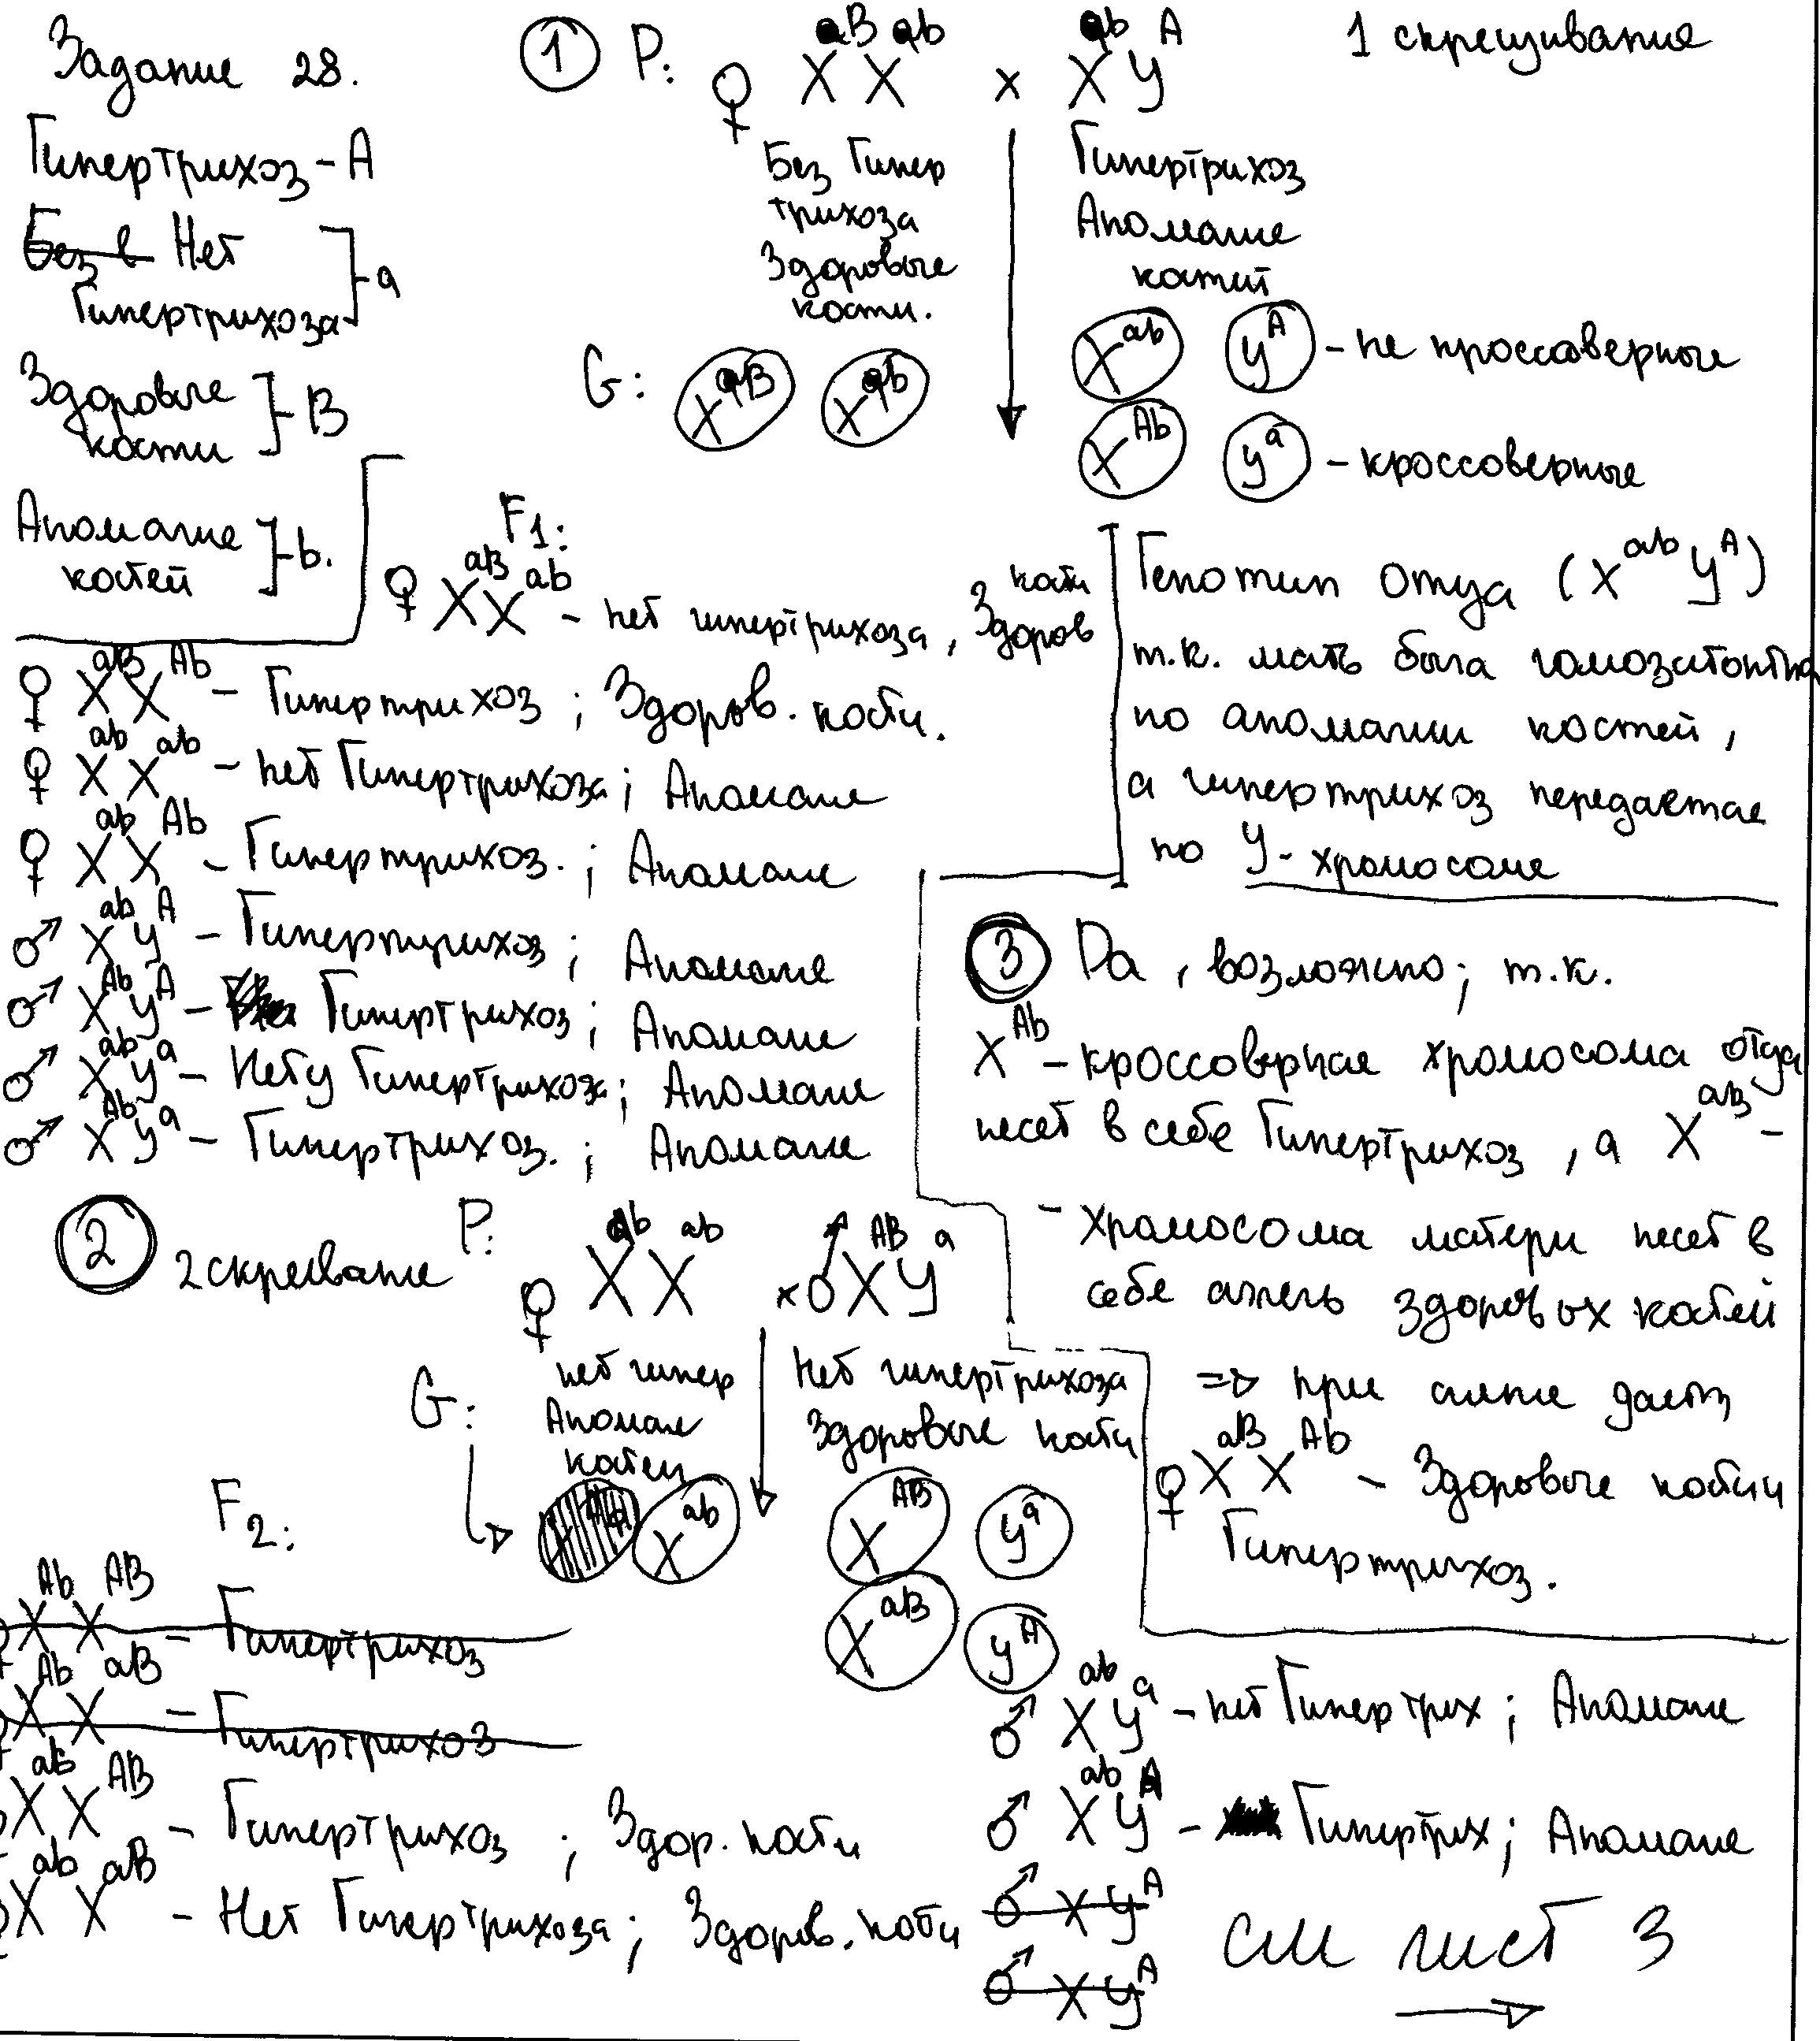 Задание 28.
Гипертрихоз - А
Без в Нет
Гипертрихоза ] - а
Здоровые
кости ] - В
Аномалие
костей ] - b.
① Р: ♀ X^aB X^ab x X^ab У^А
1 скрещивание
Без Гипер
трихоза
Здоровые
кости.
Гипертрихоз
Аномалие
костей
G: X^aB X^ab
X^ab У^А - не кроссоверные
X^Ab У^а - кроссоверные
F1:
♀ X^aB X^ab - нет гипертрихоза, Здоров кости
♀ X^aB X^Ab - Гипертрихоз ; Здоров. кости.
♀ X^ab X^ab - нет Гипертрихоза ; Аномалие
♀ X^ab X^Ab - Гипертрихоз. ; Аномалие
♂ X^ab У^А - Гипертрихоз ; Аномалие
♂ X^Ab У^А - Гипертрихоз ; Аномалие
♂ X^ab У^а - Нету Гипертрихоз ; Аномалие
♂ X^Ab У^а - Гипертрихоз. ; Аномалие
Генотип отца (X^ab У^А)
т.к. мать была гомозиготна
по аномалии костей,
а гипертрихоз передается
по У - хромосоме
③ Да, возможно; т.к.
X^Ab - кроссоверная хромосома отца
несет в себе Гипертрихоз, а X^aB -
- хромосома матери несет в
себе аллель здоровых костей
=> при слиян дасть
♀ X^aB X^Ab - Здоровые кости
Гипертрихоз.
② 2 скрещвание Р: ♀ X^ab X^ab x ♂ X^AB У^а
нет гипер
Аномал
костей
Нет гипертрихоза
Здоровые кости
G: X^ab
X^AB У^а
X^aB У^А
F2:
X^Ab X^AB - Гипертрихоз
X^Ab X^aB - Гипертрихоз
X^ab X^AB - Гипертрихоз ; Здор. кости
X^ab X^aB - Нет Гипертрихоза ; Здоров. кости
♂ X^ab У^а - нет Гипертрих ; Аномалие
♂ X^ab У^А - Гипертрих ; Аномалие
♂ X У^А
♂ X У^А
см лист 3